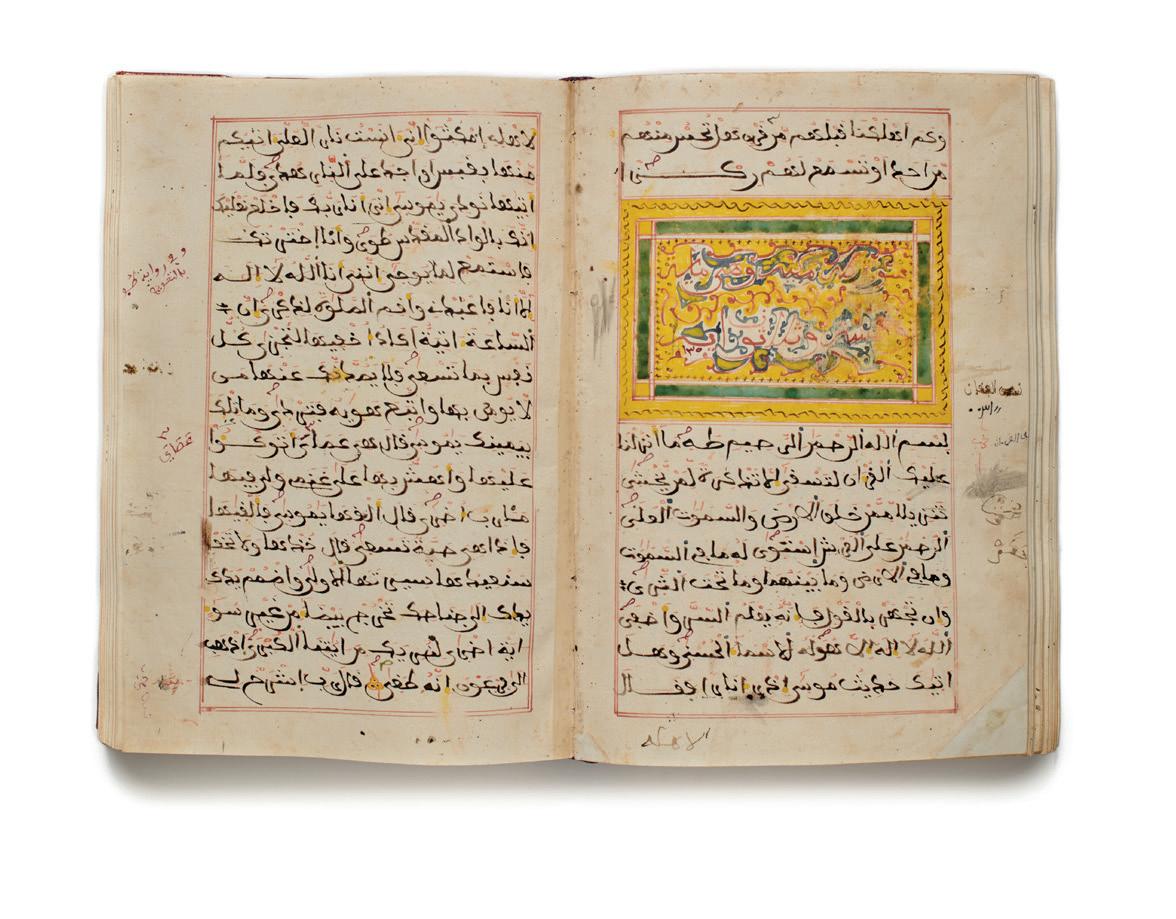 وكم اهلكنا قبلهم من قرن هل تحس منهم
من احد او تسمع لهم ركزا
بسم الله الرحمن الرحيم طه ما انزلنا
عليك القران لتشقى الا تذكرة لمن يخشى
تنزيلا ممن خلق الارض والسموت العلى
الرحمن على العرش استوى له ما في السموت
وما في الارض وما بينهما وما تحت الثرى
وان تجهر بالقول فانه يعلم السر واخفى
الله لا اله الا هو له الاسما الحسنى وهل
اتيك حديث موسى اذ را نارا فقال
لاهله
لاهله امكثوا اني انست نارا لعلي اتيكم
منها بقبس او اجد على النار هدى فلما
اتيها نودي يموسى اني انا ربك فاخلع نعليك
انك بالواد المقدس طوى وانا اخترتك
فاستمع لما يوحى انني انا الله لا اله
الا انا فاعبدني واقم الصلوة لذكري ان
الساعة اتية اكاد اخفيها لتجزى كل
نفس بما تسعى فلا يصدنك عنها من
لا يومن بها واتبع هويه فتردى وما تلك
بيمينك يموسى قال هي عصاي اتوكوا
عليها واهش بها على غنمي ولي فيها
مئارب اخرى قال القها يموسى فالقيها
فاذا هي حية تسعى قال خذها ولا تخف
سنعيدها سيرتها الاولى واضمم يدك
يدك الى جناحك تخرج بيضا من غير سو
اية اخرى لنريك من ايتنا الكبرى اذهب
الى فرعون انه طغى قال رب اشرح لي
عصاي